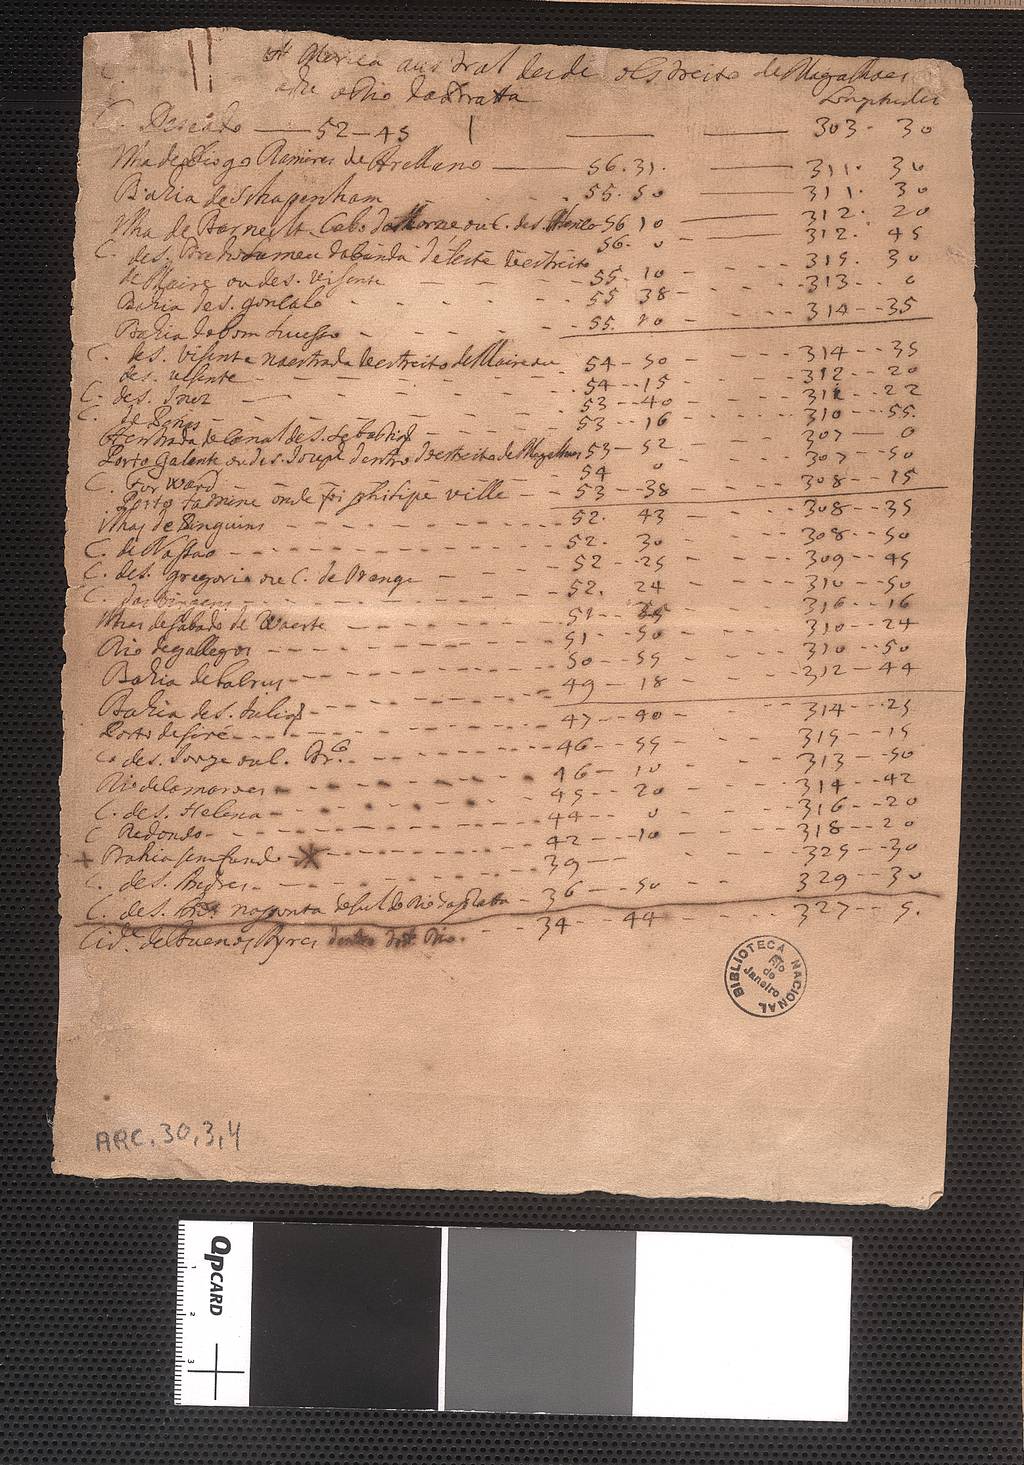 America austral desde o estreito de Magalhaes
athe o Rio da Pratta
Longitudes
C. Deseado — 52 - 45 — 303 - 30
Ilha de Diogo Ramires de Arellano — 56. 31. — 311. 30
Bahia de Schapenham 55. 50 — 311. 30
Ilha de Barnevelt 56 10 — 312. 20
56. 0 — 312. 45
de Maire ou de s. Visente 55 - 10 - 315. 30
Bahia de s. Gonsalo 55 38 - 313 - - 0
Bahia de bom sucesso 55. 20 314 - - 35
C. de s. Visente na entrada do estreito de Maire ou
de s. Visente 54 - 50 - 314 - - 35
C. de s. Inez 54 - - 15 312 - - 20
C. de Penas 53 - - 40 312 - - 22
A entrada do Canal de s. Sebastião 53 - 16 310 - - 55.
Porto Galante ou de s. Joseph dentro do estreito de Magalhaes 53 - - 52 307 — 0
C. For Ward 54 0 307 - - 50
Porto famine onde foi philipe ville - - 53 - - 38 308 - - 15
Ilhas de Penguins 52. 43 308 - - 35
C. de Nassao 52. 30 308 - - 50
C. de s. gregorio ou C. de Orange 52 - - 25 309 - - 45
C. das Virgens 52. 24 310 - - 50
Ilhas de Sabado de Waerte 316 - - 16
Rio de gallegos 51 - - 50 310 - - 24
50 - - 55 310 - - 50
Bahia de s. Julião 49 - - 18 312 - 44
Porto desiré 47 - - 40 314 - - 25
C. de s. Jorge ou C. Br.co 46 - - 55 315 - - 15
46 - - 10 313 - - 50
C. de s. Helena 45 - - 20 314 - - 42
C Redondo 44 - - 0 316 - - 20
+ Bahia sem fundo 42 - - 10 318 - - 20
C. de s. Andres 39 — 325 - - 30
C. de s. Ant.o na ponta do sul do Rio da prata - 36 - - 50 329 - - 30
Cid.e de Buenos Ayres dentro do d.o Rio. 34 - - 44 327 - - 5.
BIBLIOTECA NACIONAL
Rio de Janeiro
ARC. 30, 3, 4
QPCARD
1
2
3